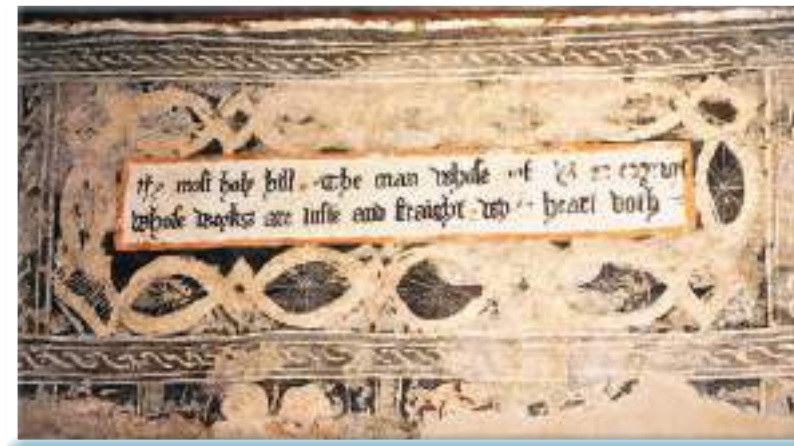 most holy hill. The man whose
whose workes are iuste and straight heart doth